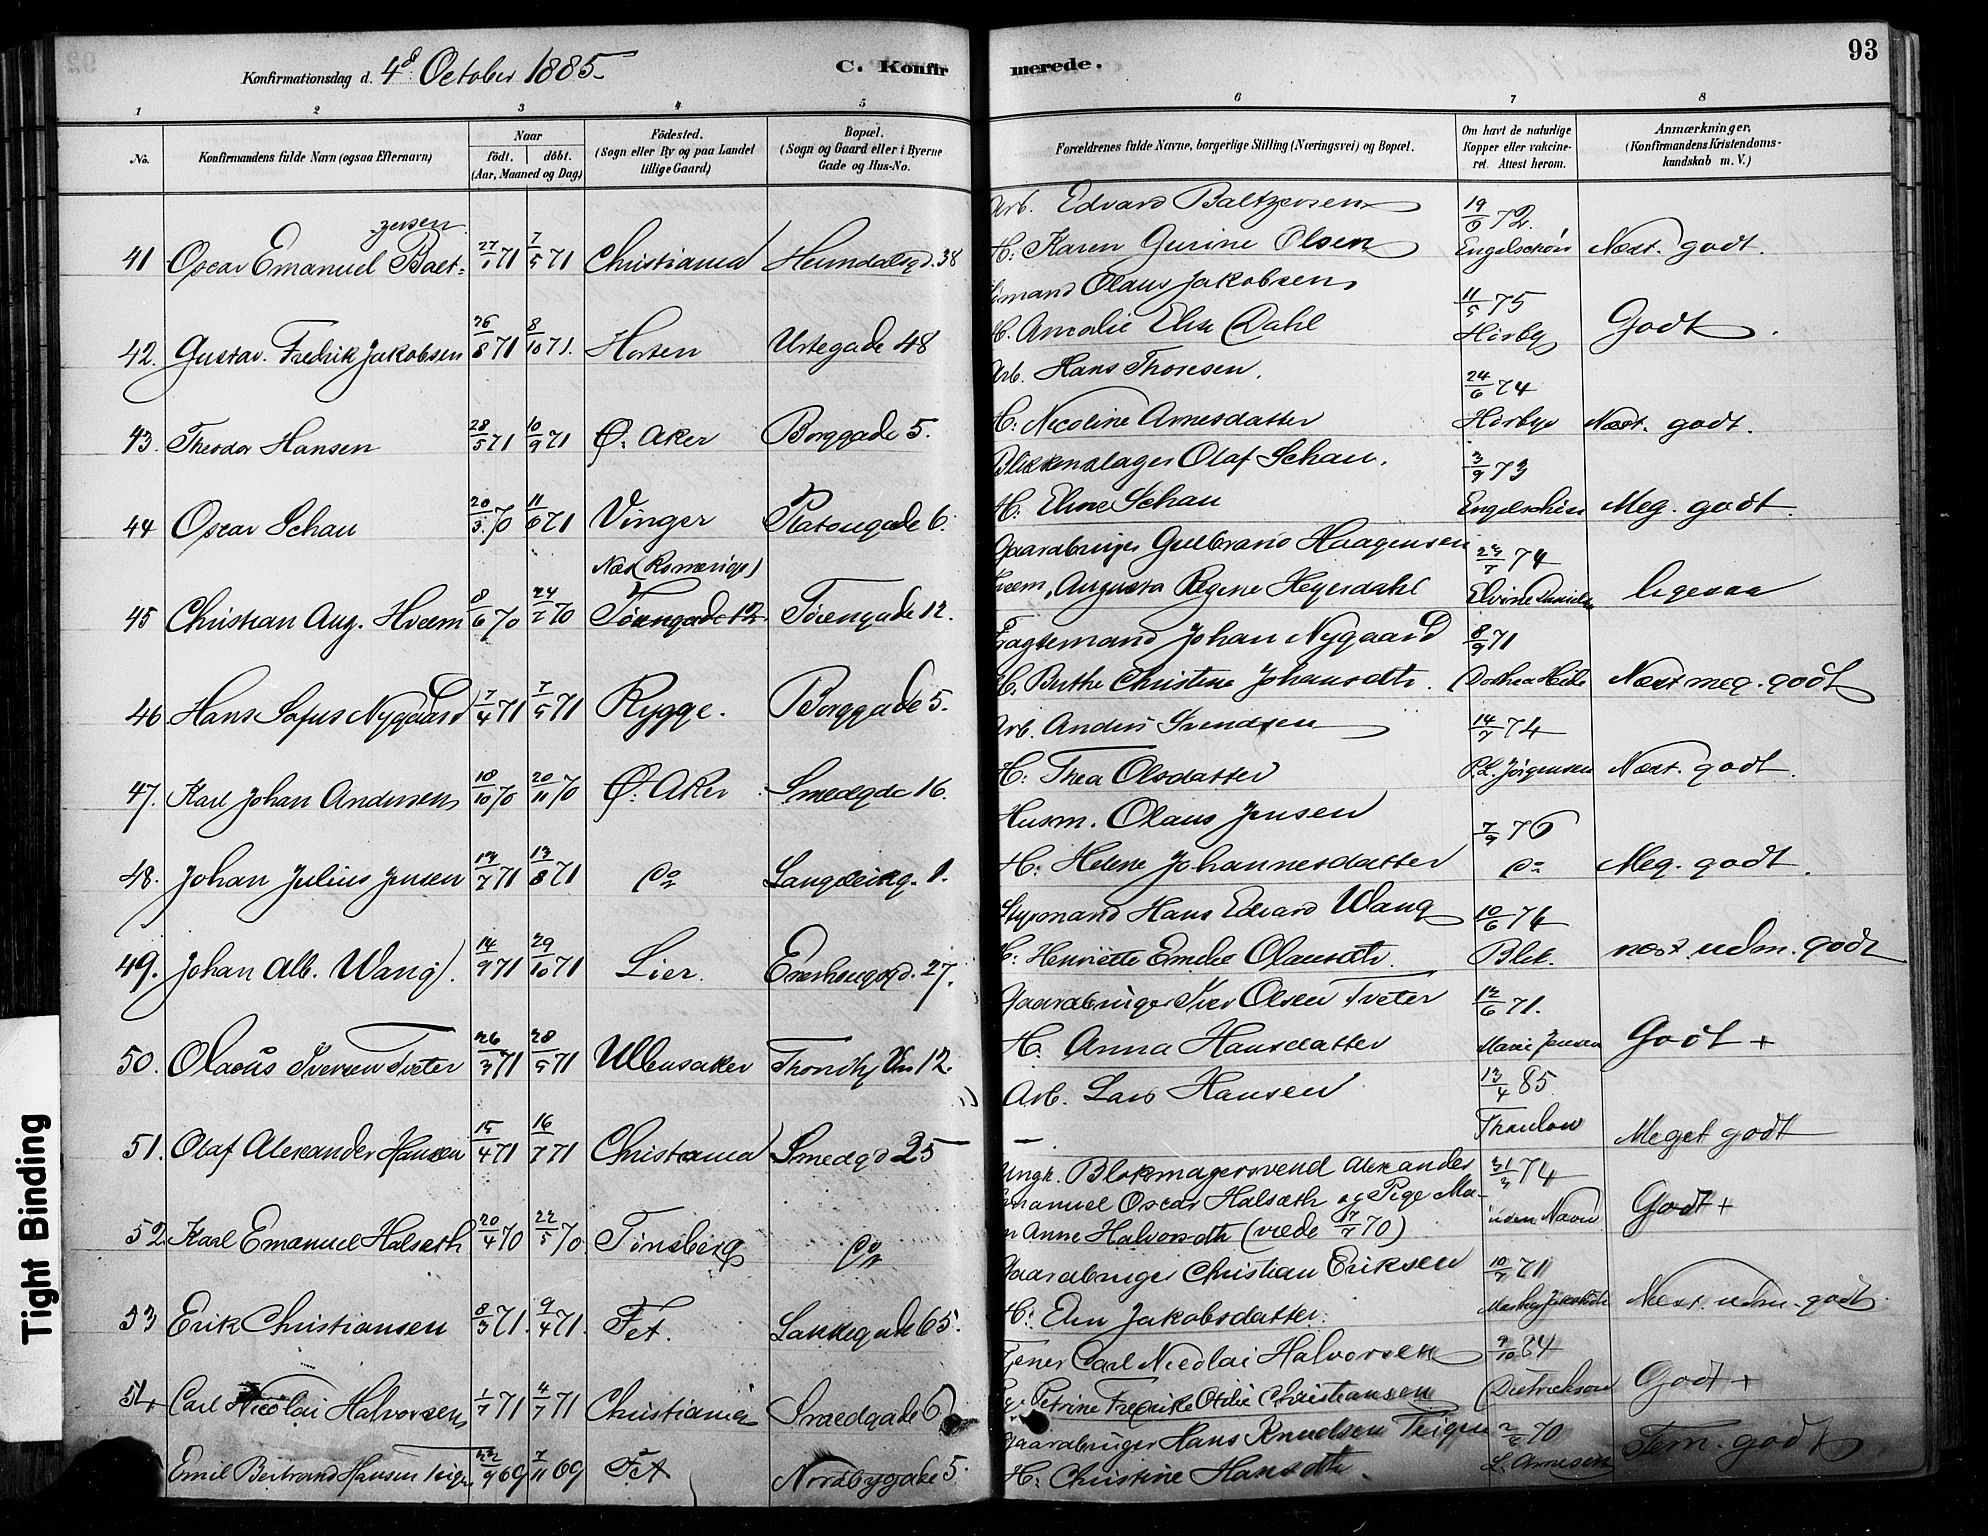 Konfirmationsdag d. 4de October 1885. C. Konfirmerede. 93
1 2 3 4 5 6 7 8
No. Konfirmandens fulde Navn (ogsaa Efternavn) Naar födt. döbt. (Aar, Maaned og Dag) Födested. (Sogn eller By og paa Landet tillige Gaard) Bopæl. (Sogn og Gaard eller i Byerne Gade og Hus-No. Forældrenes fulde Navne, borgerlige Stilling (Næringsvei) og Bopæl. Om havt de naturlige Kopper eller vakcineret. Attest herom. Anmærkninger, (Konfirmandens Kristendomskundskab m. V.)
zersen
Arb. Edvard Baltzersen 19/6 72.
41 Oscar Emanuel Balt= 27/1 71 7/5 71 Christiania Heimdalsgd. 38 H: Karen Gurine Olsen Engelschiøn Næst. godt.
Sømand Olaus Jakobsen 11/5 75
42. Gustav. Fredrik Jakobsen 26/8 71 8/10 71. Horten Urtegade 48 H. Amalie Elise Dahl Hiorby Godt.
Arb. Hans Thoresen. 24/6 74
43. Theodor Hansen 28/5 71 10/9 71 Ø. Aker Borggade 5. H: Nicoline Arnesdatter Hiorbye Næst. godt.
Blikkenslager Olaf Schau. 3/9 73
44 Oscar Schau 20/3 70 11/6 71 Vinger Platougade 6. H: Eline Schau Engelschiøn Meg. godt.
Næs (Romerige) Gaardbruger Gulbrand Haagensen 23/7 74
45 Christian Aug. Hveem 8/6 70 24/7 70 Tøiengade 12 Tøiengade 12. Hveem, Augusta Regine Heyerdahl Elvine Danielsen ligesaa
Fragtemand Johan Nygaard 8/9 71
46 Hans Sofus Nygaard 7/4 71 7/5 71 Rygge. Borggade 5. H. Berthe Christine Johansdtr. Dorthea Hide Næst meg. godt
Arb. Anders Svendsen 14/7 74
47. Karl Johan Andersen 18/10 70 20/11 70 Ø. Aker Smedgde 16. H: Thea Olsdatter P. L. Jørgensen Næst. godt.
Husm. Olaus Jensen 7/9 76
48. Johan Julius Jensen 13/7 71 13/8 71 Do Langleikg. 1. H: Helene Johannesdatter Do Meg. godt.
Styrmand Hans Edvard Wang 10/6 74
49. Johan Alb. Wang. 14/9 71 29/10 71 Lier. Enerhaugsgd. 27. H: Henriette Emilie Olausdtr. Blek. næst. udm. godt
Gaardbruger Iver Olsen Tveter 12/6 71.
50. Olaus Iversen Tveter 26/3 71 28/5 71 Ullensaker Trondhj. Vn 12. H. Anna Hansdatter Marie Jensen Godt +
Arb. Lars Hansen 13/4 85
51. Olaf Alexander Hansen 15/4 71 16/7 71 Christiania Smedgd 25 — Thaulow Meget godt
Ungk. Blokmagersvend Alexander 31/3 74
Emanuel Oscar Halseth og Pige Ma-
52. Karl Emanuel Halseth 20/4 70 22/5 70 Tønsberg Do n Anne Halvorsdtr (viede 17/7 70) uden Navn Godt +
Gaardbruger Christian Eriksen 10/7 71
53 Erik Christiansen 8/3 71. 9/4 71. Fet. Lakkegade 65. H: Elen Jakobsdatter. Næst. udm. godt
Tjener Carl Nicolai Halvorsen 9/10 84
54 Carl Nicolai Halvorsen 1/7 71 4/7 71 Christiania Smedgade 6 Petrine Fredrikke Otilie Christiansen Dietrichson Godt +
Gaardbruger Hans Knudsen Teigen 70
Emil Bertrand Hansen Teigen 22/9 69 7/11 69 Fet Nordbygade 5. H: Christine Hansdtr. L. Arnesen Tem. godt
Tight Binding